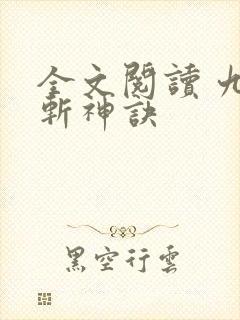 全文閱讀 九
斬神訣
黑空行雲